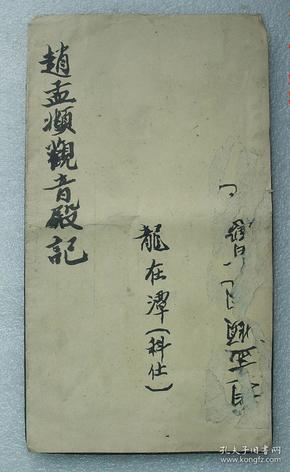 趙孟頫觀音殿記
龍在潭(科仕)
孔夫子旧书网
www.kongfz.com